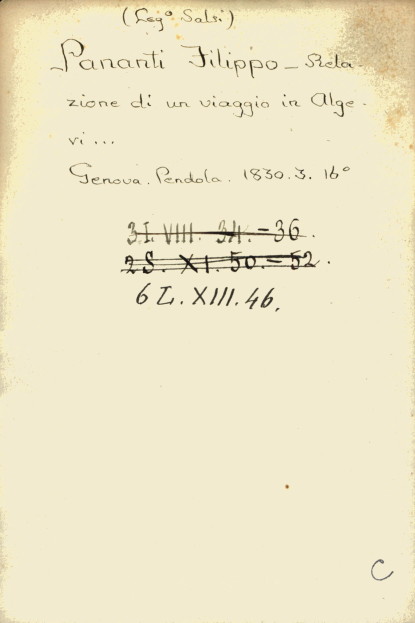 (Leg.º Salsi)
Pananti Filippo – Rela-
zione di un viaggio in Alge-
ri...
Genova. Pendola. 1830. 3. 16º
3 I. VIII. 34. – 36.
2 S. XI. 50. – 52.
6 L. XIII. 46.
C